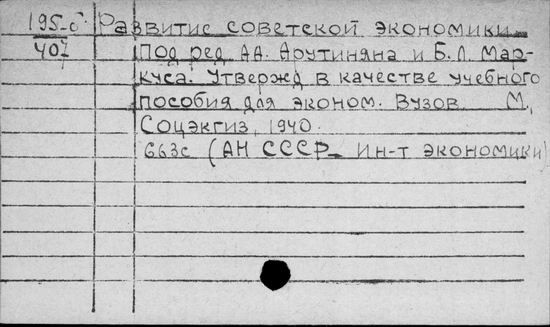 195-б Развитие советской экономики
407 Под ред. А.А. Арутиняна и Б.Л. Мар-
куса. Утвержд в качестве учебного
пособия для эконом. Вузов М.,
Соцэкгиз, 1940.
663с (АН СССР Ин-т экономики)